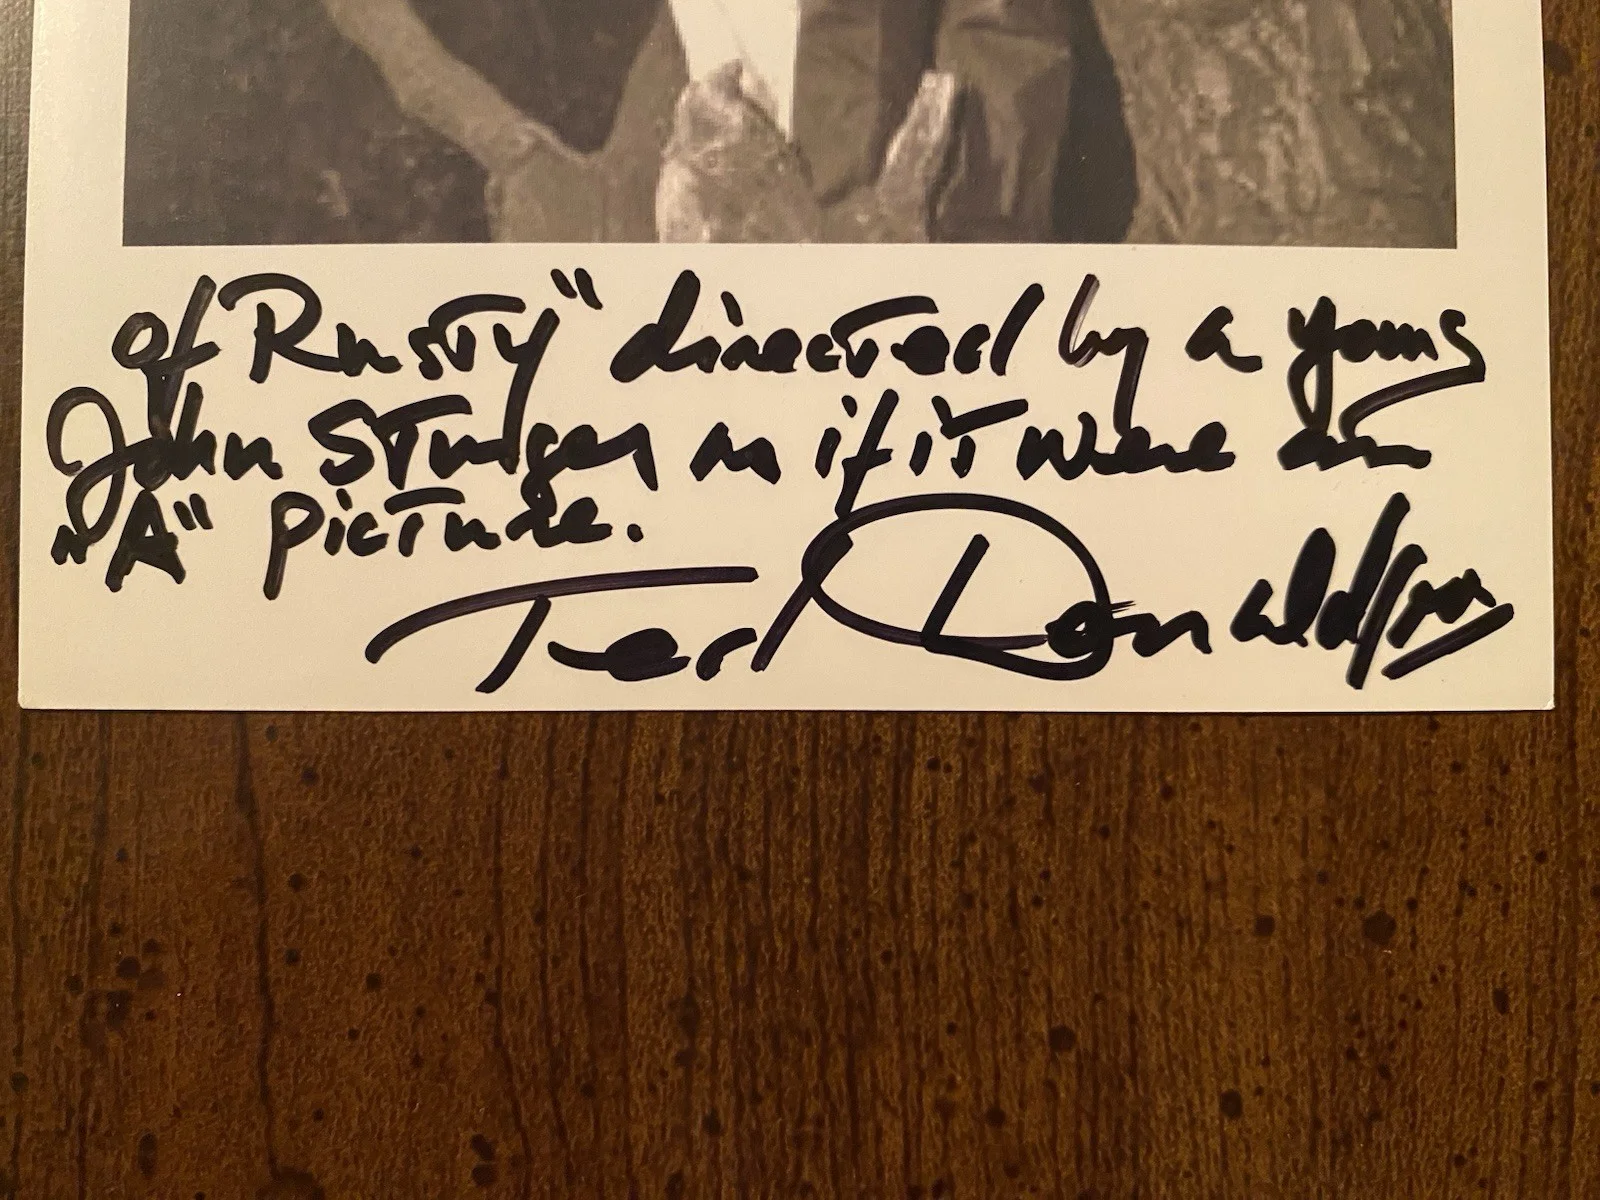 of Rusty" directed by a young
John Sturges as if it were an
"A" picture.
Ted Donaldson